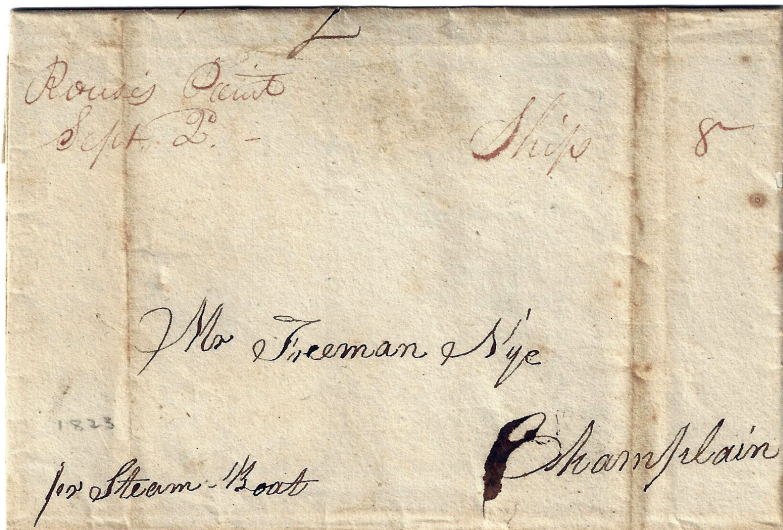 Rouses Point
Sept. 2d. -
Ship 8
Mr Freeman Nye
1823
Champlain
pr Steam-Boat